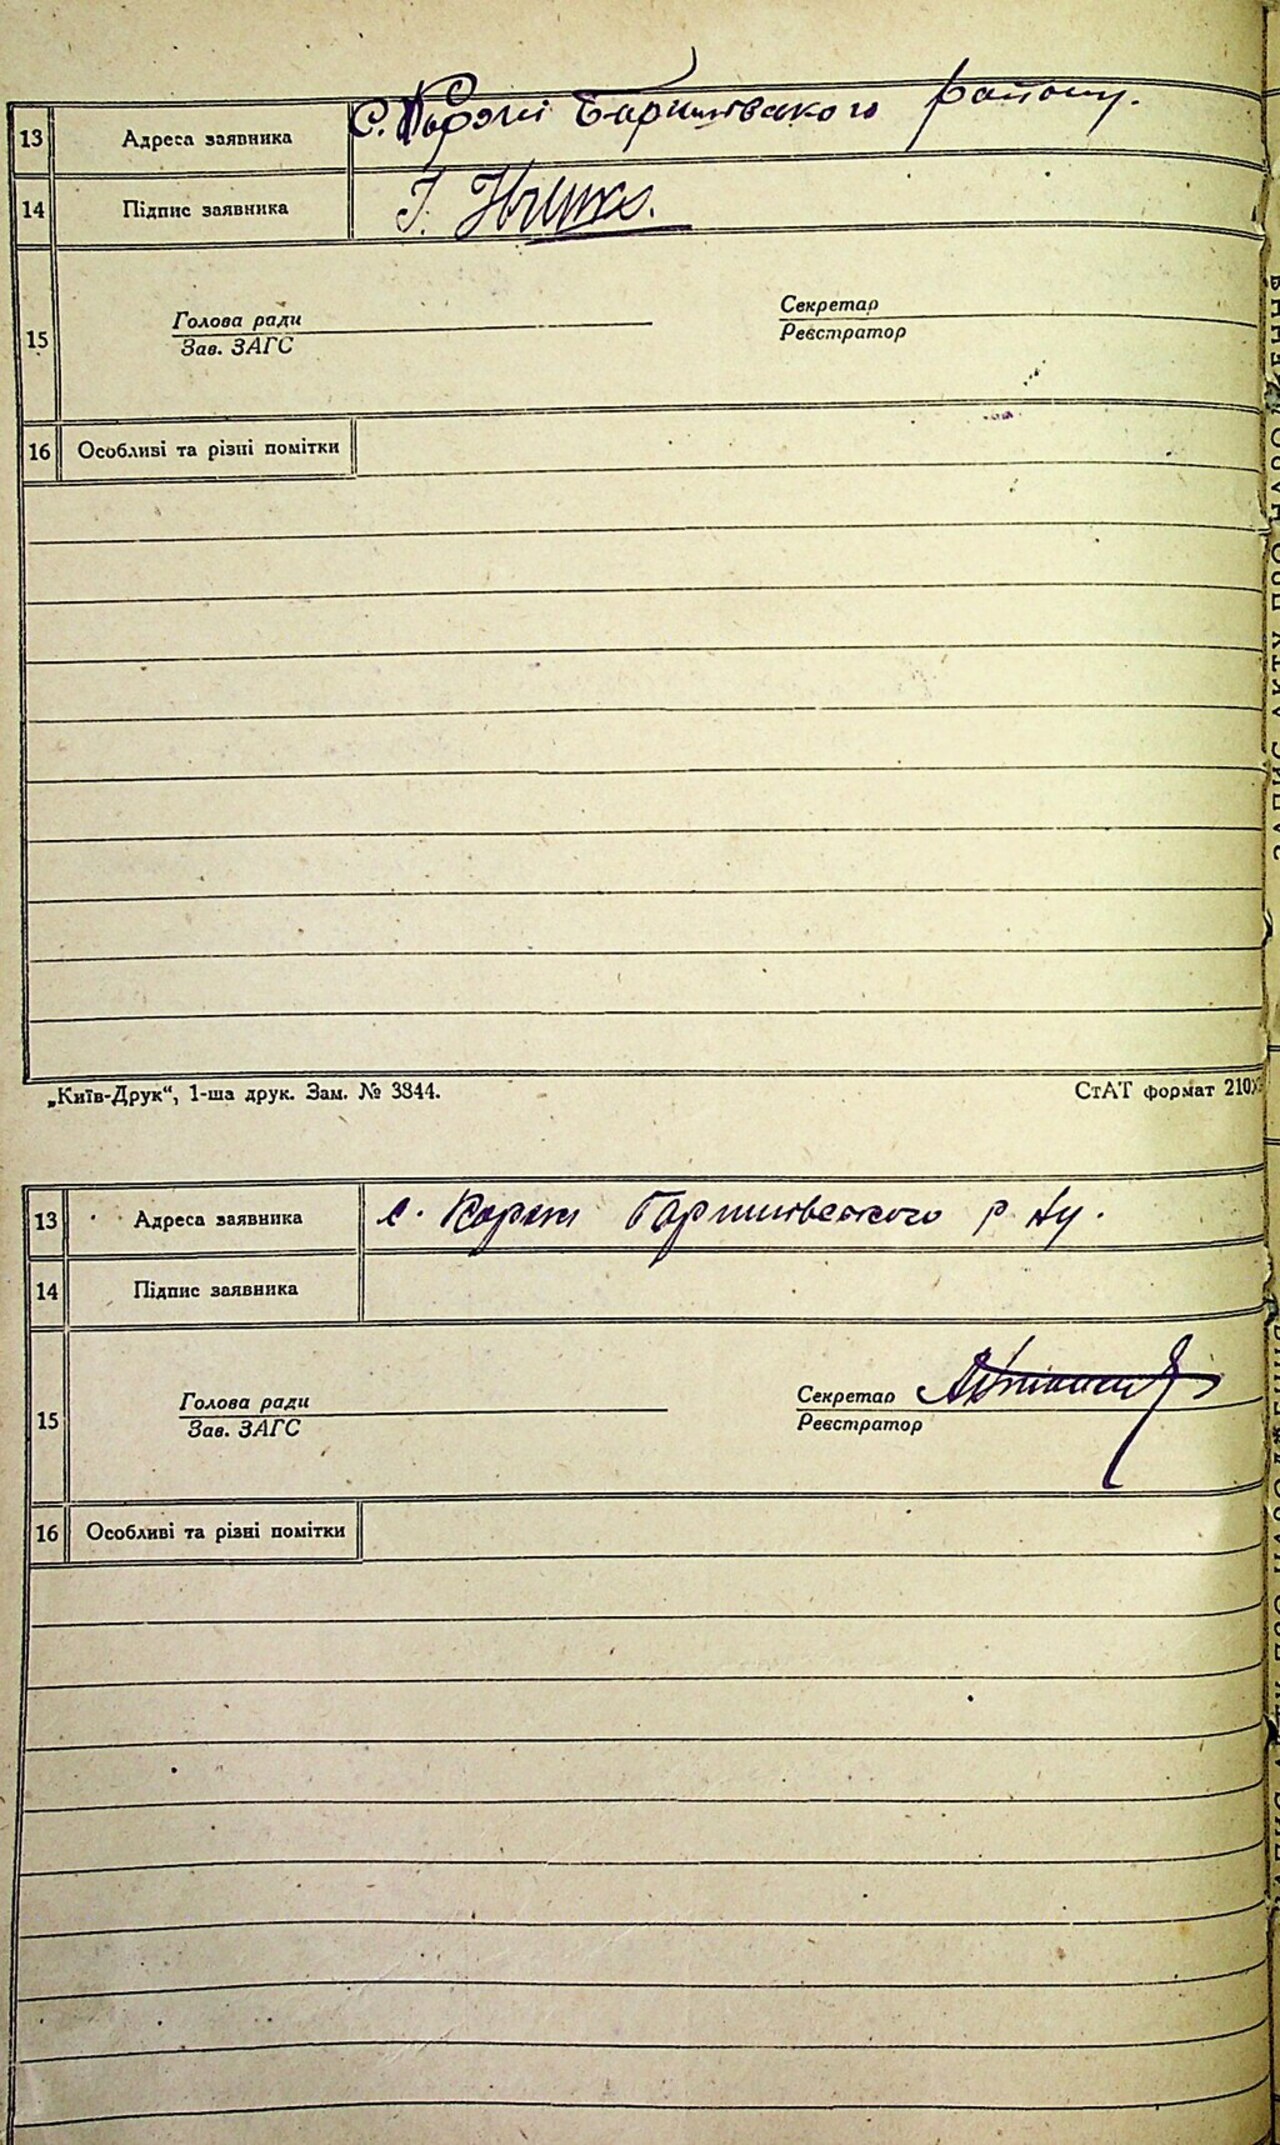 13 Адреса заявника С. Коржі Баришівського району.
14 Підпис заявника І.
15 Голова ради Секретар
Зав. ЗАГС Реєстратор
16 Особливі та різні помітки
„Київ-Друк“, 1-ша друк. Зам. № 3844. СтАТ формат 210X
13 Адреса заявника с. Коржі Баришівського р-ну.
14 Підпис заявника
15 Голова ради Секретар
Зав. ЗАГС Реєстратор
16 Особливі та різні помітки